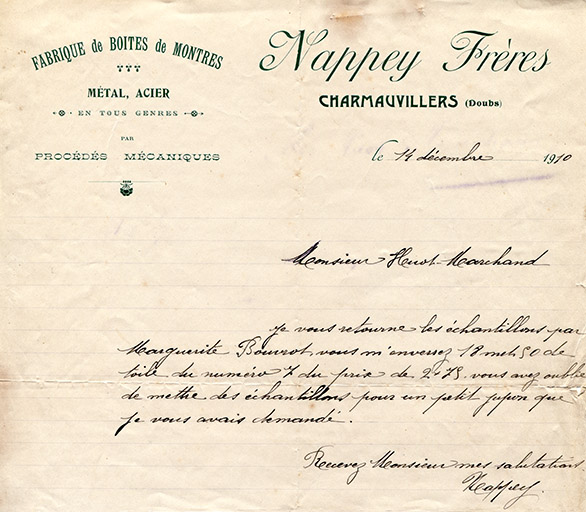 FABRIQUE de BOITES de MONTRES
MÉTAL, ACIER
EN TOUS GENRES
PAR
PROCÉDÉS MÉCANIQUES
Nappey Frères
CHARMAUVILLERS (Doubs)
le 14 décembre 1910
Monsieur Huot-Marchand
Je vous retourne les échantillons par
Marguerite Bouvrot, vous m'enverez 18 met 50 de
toile du numéro 7 du prix de 2.75 vous avez oublié
de mettre des échantillons pour un petit jupon que
je vous avais demandé.
Recevez Monsieur mes salutations
Nappey